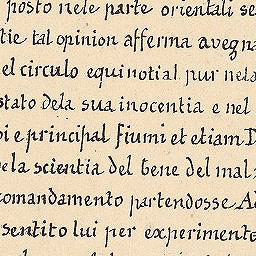 posto nele parte orientali se
tie tal opinion afferma avegna
el circulo equinotial pur nela
stato dela sua inocentia e nel
pi e principal fiumi et etiam D
ela scientia del bene del mal
comandamento partendosse A
sentito lui per experimento